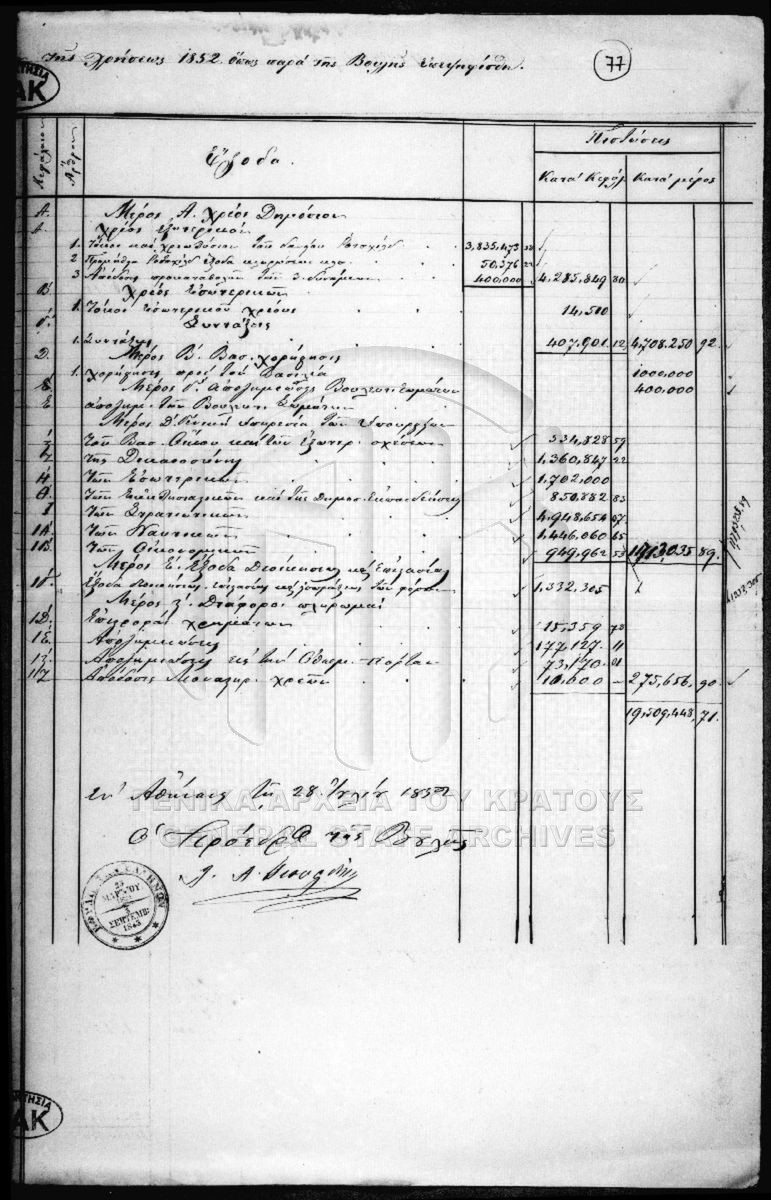 της χρήσεως 1852 όπως παρά της Βουλής εψηφίσθη.
77
Κεφάλαιον Άρθρον Έξοδα. Πιστώσεις
Κατά Κεφάλ. Κατά μέρος
Α. Μέρος Α. Χρέος Δημόσιον
Α. Χρέος εξωτερικόν
1. Τόκοι και χρεωλύσιον του δανείου Ροτσχίλδ 3,835,473
2 Προμήθεια Ροτσχίλδ έξοδα 50,376
3 Απόδοσις προκαταβολών των 3 δυνάμεων 400,000 4,285,849 80
Β Χρέος Εσωτερικόν
1. Τόκοι Εσωτερικού χρέους 14,500
Γ. Συντάξεις
1. Συντάξεις 407,901 12 4,708,250 92.
Δ. Μέρος Β. Βασ. χορήγησις
1. χορήγησις προς τον Βασιλέα 1000,000
Μέρος Γ. Αποζημιώσεις Βουλευτ. Σωμάτων 400,000
Ε αποζημ. των Βουλευτ. Σωμάτων
Μέρος Δ. Γενική υπηρεσία των Υπουργείων
του Βασ. Οίκου και των εξωτερ. σχέσεων 534,828 59
Ζ της Δικαιοσύνης 1,360,847 22
Η των Εσωτερικών 1,702,000
Θ. των Εκκλησιαστικών και της Δημοσ. Εκπαιδεύσεως 850,882 83
Ι των Στρατιωτικών 4,948,654 07
ΙΑ των Ναυτικών 1,446,060 65
ΙΒ. των Οικονομικών 949,962 53 89.
Μέρος Ε. Έξοδα Διοικήσεως και Επιστασίας
ΙΓ. Έξοδα διοικήσεως, επιστασίας και εισπράξεως των φόρων 1,332,305
Μέρος ς. Διάφοροι πληρωμαί
ΙΔ. Επιστροφαί χρημάτων 15,359 78
ΙΕ. Αποζημιώσεις 177,127. 11
Αποζημιώσεις εις την Οθωμ. Πόρταν 73,170. 01
ΙΖ Απόδοσις χρεών 10,000 — 275,656. 90
19,509,448, 71.
1,332,305
Εν Αθήναις τη 28 Ιουλίου 1852
Ο Πρόεδρος της Βουλής
ΓΕΝΙΚΑ ΑΡΧΕΙΑ ΤΟΥ ΚΡΑΤΟΥΣ
GENERAL STATE ARCHIVES
25 ΜΑΡΤΙΟΥ 1821
3 ΣΕΠΤΕΜΒ. 1843
ΑΚ
ΑΚ